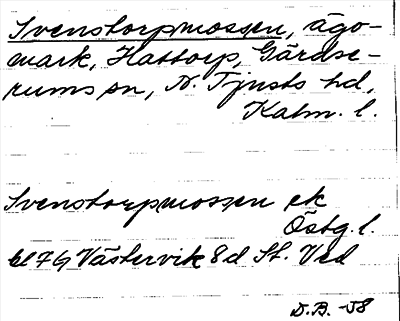 Svenstorpmossen, ägo-
mark, Hattorp, Gärdse-
rums sn, N. Tjusts hd,
Kalm. l.
Svenstorpmossen ek
Östg. l.
bl 7G Västervik 8d St. Ved
D.B. -58